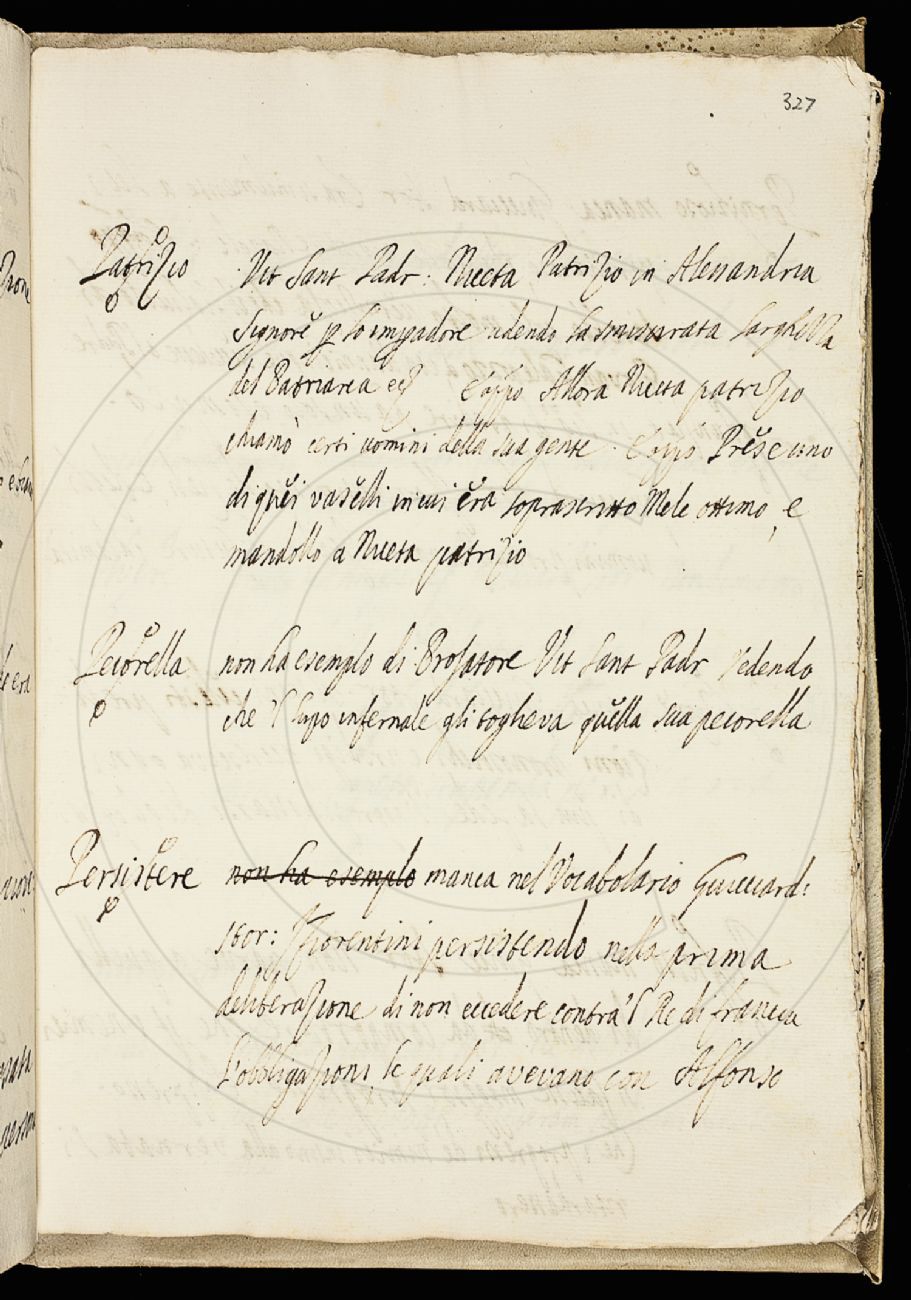 327
Patrizio Vit Sant Padr: Niceta Patrizio in Alessandria
Signore p lo imperadore udendo la smisurata larghezza
del Patriarca ec E appo Allora Niceta patrizio
chiamò certi uomini della sua gente. E appo Prese uno
di quei vaselli in cui era soprascritto Mele ottimo, e
mandollo a Niceta patrizio
Pecorella non ha esemplo di Prosatore Vit Sant Padr Vedendo
che 'l lupo infernale gli togheva quella sua pecorella
Persistere non ha esemplo manca nel Vocabolario Guicciard:
stor: Fiorentini persistendo nella prima
deliberazione di non eccedere contra 'l Re di francia
l'obbligazioni le quali avevano con Alfonso